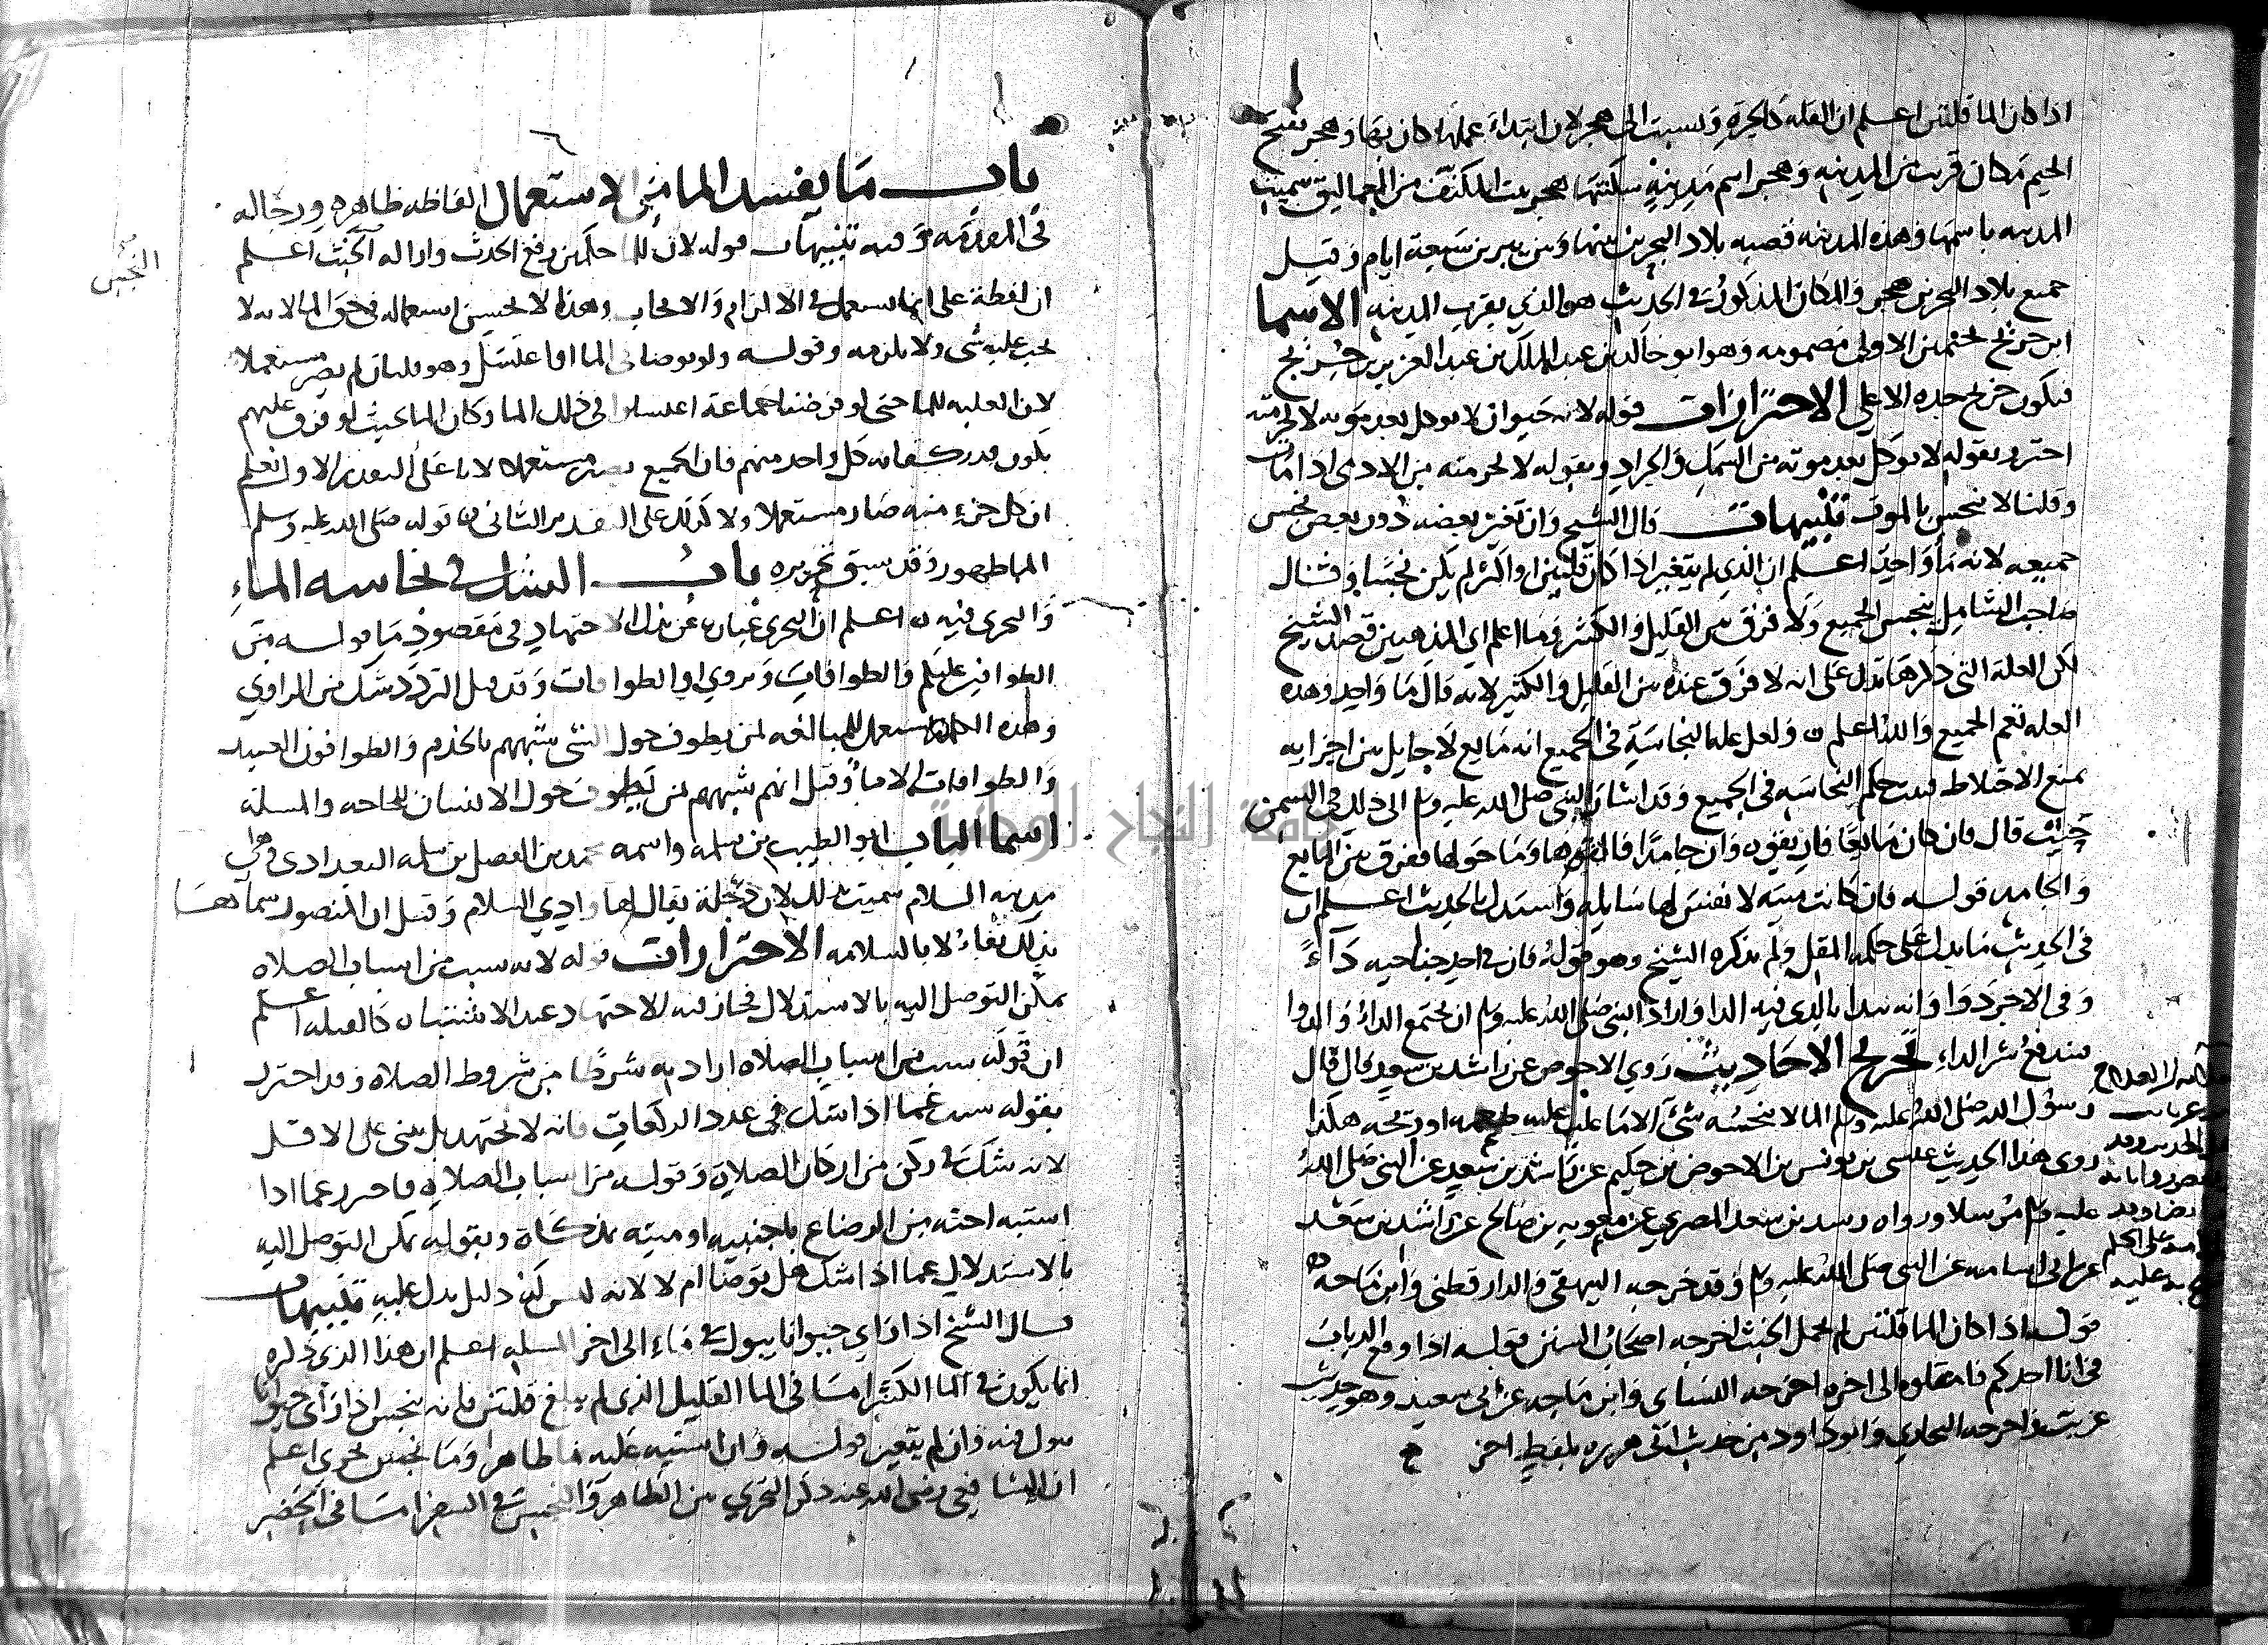 اذا كان الما قلتين اعلم ان القلة كالجرة ونسبت الى هجر لان ابتداء عملها كان بها وهجر بفتح
الجيم مكان قريب من المدينة وهجر اسم مدينة سكنتها هجر بنت المكنف من العماليق سميت
المدينه باسمها وهذه المدينه قصبه بلاد البحرين بينها وبين يبرين سبعة ايام وقيل
جميع بلاد البحرين هجر والمكان المذكور في الحديث هو الذي بقرب المدينه الاسما
ابن جريج بجيمين الاولى مضمومه وهو ابو خالد بن عبد الملك بن عبد العزيز بن جريج
فيكون جريج جده الاعلى الاحترازات قوله لانه حيوان لا يوكل بعد موته لا لحرمته
احترز بقوله لا يوكل بعد موته من السمك والجراد وبقوله لا لحرمته من الادمى اذا مات
وقلنا لا ينجس بالموت تنبيهات قال الشيخ وان تغير بعضه دون بعض نجس
جميعه لانه ما واحد اعلم ان الذي لم يتغير اذا كان قلتين او اكثر لم يكن نجسا وقال
صاحب الشامل ينجس الجميع ولا فرق بين القليل والكثير وما اعلم اي المذهبين قصد الشيخ
لكن العلة التي ذكرها تدل على انه لا فرق عنده بين القليل والكثير لانه قال ما واحد وهذه
العله تعم الجميع والله اعلم ولعل علة النجاسة في الجميع انه مايع لا حايل بين اجزايه
يمنع الاختلاط فيثبت حكم النجاسه في الجميع وقد اشار النبي صلى الله عليه وسلم الى ذلك في السمن
حيث قال فان كان مايعا فاريقوه وان جامدا فالقوها وما حولها ففرق بين المايع
والجامد قوله فان كانت ميته لا نفس لها سايله واستدل بالحديث اعلم ان
في الحديث ما يدل على حكمه المقل ولم يذكره الشيخ وهو قوله فان في احد جناحيه داء
وفي الاخر دوا وانه يبدا بالذي فيه الدا واراد النبي صلى الله عليه وسلم ان يجتمع الداء والدوا
فيندفع شر الداء تخريج الاحاديث روي الاحوص عن راشد بن سعد قال قال
رسول الله صلى الله عليه وسلم الما لا ينجسه شئ الا ما غلب عليه طعمه او ريحه هكذا
روى هذا الحديث عيسى بن يونس بن الاحوص بن حكيم عن راشد بن سعد عن النبي صلى الله
عليه وسلم مرسلا ورواه رسد بن سعد المصري عن معويه بن صالح عن راشد بن سعد
عن ابي امامه عن النبي صلى الله عليه وسلم وقد خرجه البيهقي والدارقطني وابن ماجه
قوله اذا كان الما قلتين لم يحمل الخبث اخرجه اصحاب السنن قوله اذا وقع الذباب
في انا احدكم فامقلوه الى اخره اخرجه النساى وابن ماجه عن ابي سعيد وهو حديث
غريب واخرجه البخاري وابو داود من حديث ابى هريره بلفظ اخر
باب ما يفسد الما من الاستعمال الفاظه ظاهره ورجاله
في المقدمه وفيه تنبيهات قوله لان للما حكمين رفع الحدث وازاله الخبث اعلم
النجس
ان لفظة على انما تستعمل في الالزام والايجاب وهذا لا يحسن استعماله في حق الما لانه لا
يجب عليه شى ولا يلزمه وقوله ولو توضا في الما او اغتسل وهو قلتان لم يصر مستعملا
لان الغلبه للما حتى لو فرضنا جماعة اغتسلوا في ذلك الما وكان الما بحيث لو فرق عليهم
يكون قدر كفايه كل واحد منهم فان الجميع يصير مستعملا لانا على التقدير الاول نعلم
ان كل جزء منه صار مستعملا ولا كذلك على التقدير الثاني قوله صلى الله عليه وسلم
الما طهور وقد سبق تخريجه باب الشك في نجاسه الماء
والتحري فيه اعلم ان التحري عباره عن بذل الاجتهاد في مقصود ما قوله من
الطوافين عليكم والطوافات ويروى او الطوافات وقد قيل التردد شك من الراوي
وهذه الكلمة تستعمل للمبالغه لمن يطوف حول الشئ شبههم بالخدم والطوافون العبيد
والطوافات الاما وقيل انهم شبههم بمن يطوف حول الانسان للحاجه والمسله
اسما الباب ابو الطيب بن سلمه واسمه محمد بن المفضل بن سلمه البغدادى وهي
مدينه السلام سميت بذلك لان دجلة يقال لها وادي السلام وقيل ان المنصور سماها
بذلك تفاءلا بالسلامه الاحترازات قوله لانه سبب من اسباب الصلاه
يمكن التوصل اليه بالاستدلال فجاز فيه الاجتهاد عند الاشتباه كالقبله اعلم
ان قوله سبب من اسباب الصلاه اراد به شرطا من شروط الصلاه وقد احترز
بقوله سبب عما اذا شك في عدد الركعات فانه لا يجتهد بل يبنى على الاقل
لانه شك في ركن من اركان الصلاة وقوله من اسباب الصلاه فاحترز عما اذا
اشتبه اخته من الرضاع باجنبيه او ميته بمذكاة وبقوله يمكن التوصل اليه
بالاستدلال عما اذا شك هل توضا ام لا لانه ليس له دليل يدل عليه تنبيهات
قال الشيخ اذا راي حيوانا يبول في ماء الى اخر المسله اعلم ان هذا الذي ذكره
انما يكون في الما الكثير امسا في الما القليل الذى لم يبلغ قلتين فانه ينجس اذا راى حيوانا
يبول فيه وان لم يتغير قوله وان اشتبه عليه ما طاهر وما نجس تحرى اعلم
ان الشافعي رضى الله عنه ذكر التحري بين الطاهر والنجس في السفر امسا في الحضر
جامعة النجاح الوطنية